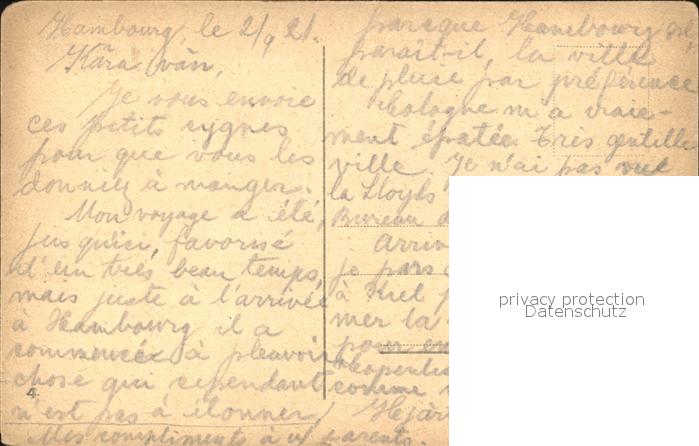 Hambourg, le 2/9 21.
Kära vän,
Je vous envoie
ces petits cygnes
pour que vous les
donniez à manger.
Mon voyage a été,
jusqu'ici, favorisé
d'un très beau temps,
mais juste à l'arrivée
à Hambourg il a
commencé à pleuvoir
chose qui cependant
n'est pas à étonner,
Mes compliments à vos parents.
parceque Hambourg est,
paraît-il, la ville
de pluie par préférence
Cologne m'a vraie-
ment épatée. Très gentille
ville. Je n'ai pas vue
la Lloyds
Bureau
Arriv
je pars
à Kiel
mer la
pour
comme
Hjär
4
privacy protection
Datenschutz